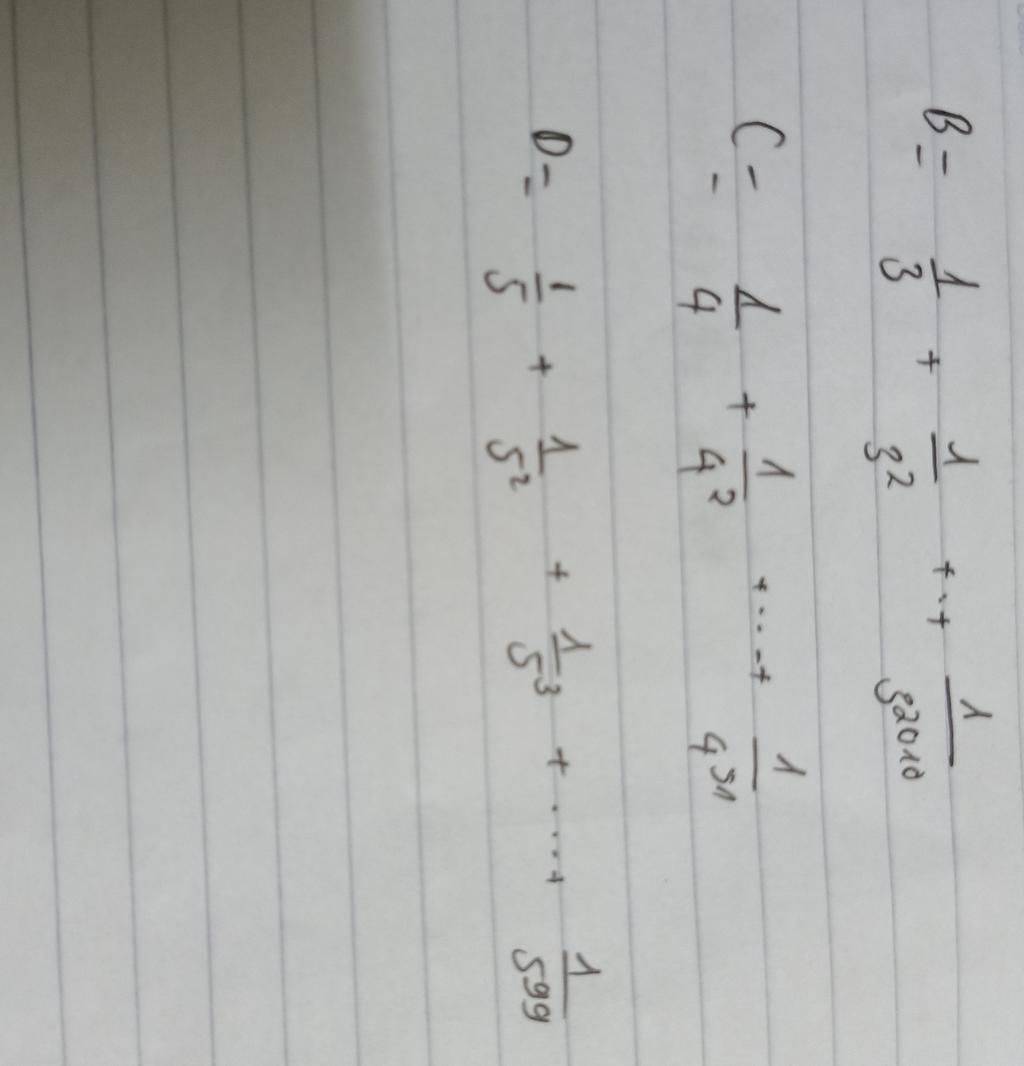 B = 1/3 + 1/3² + ... + 1/3²⁰¹⁰
C = 1/4 + 1/4² + ... + 1/4³¹
D = 1/5 + 1/5² + 1/5³ + ..... + 1/5⁹⁹